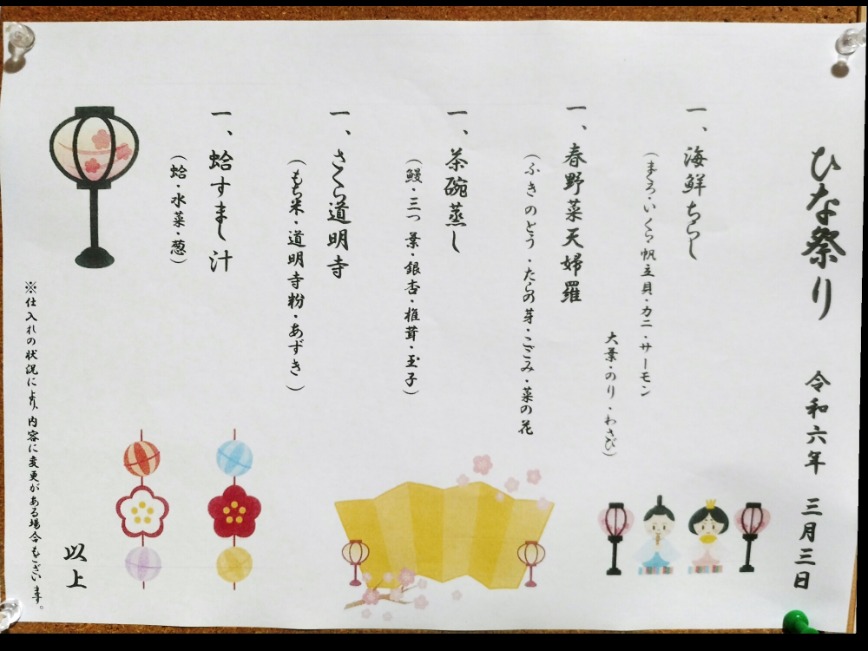 ひな祭り 令和六年 三月三日
一、海鮮ちらし
(まぐろ・いくら・帆立貝・カニ・サーモン
大葉・のり・わさび)
一、春野菜天婦羅
(ふきのとう・たらの芽・こごみ・菜の花
一、茶碗蒸し
(鰻・三つ葉・銀杏・椎茸・玉子)
一、さくら道明寺
(もち米・道明寺粉・あずき)
一、蛤すまし汁
(蛤・水菜・葱)
以上
※仕入れの状況により、内容に変更がある場合もございます。